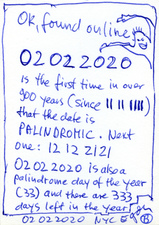 OK, found online
02 02 2020
is the first time in over
900 years (since 11 11 1111)
that the date is
PALINDROMIC. Next
one: 12 12 2121
02 02 2020 is also a
palindrome day of the year
(33) and there are 333
days left in the year!
02 02 2020 NYC